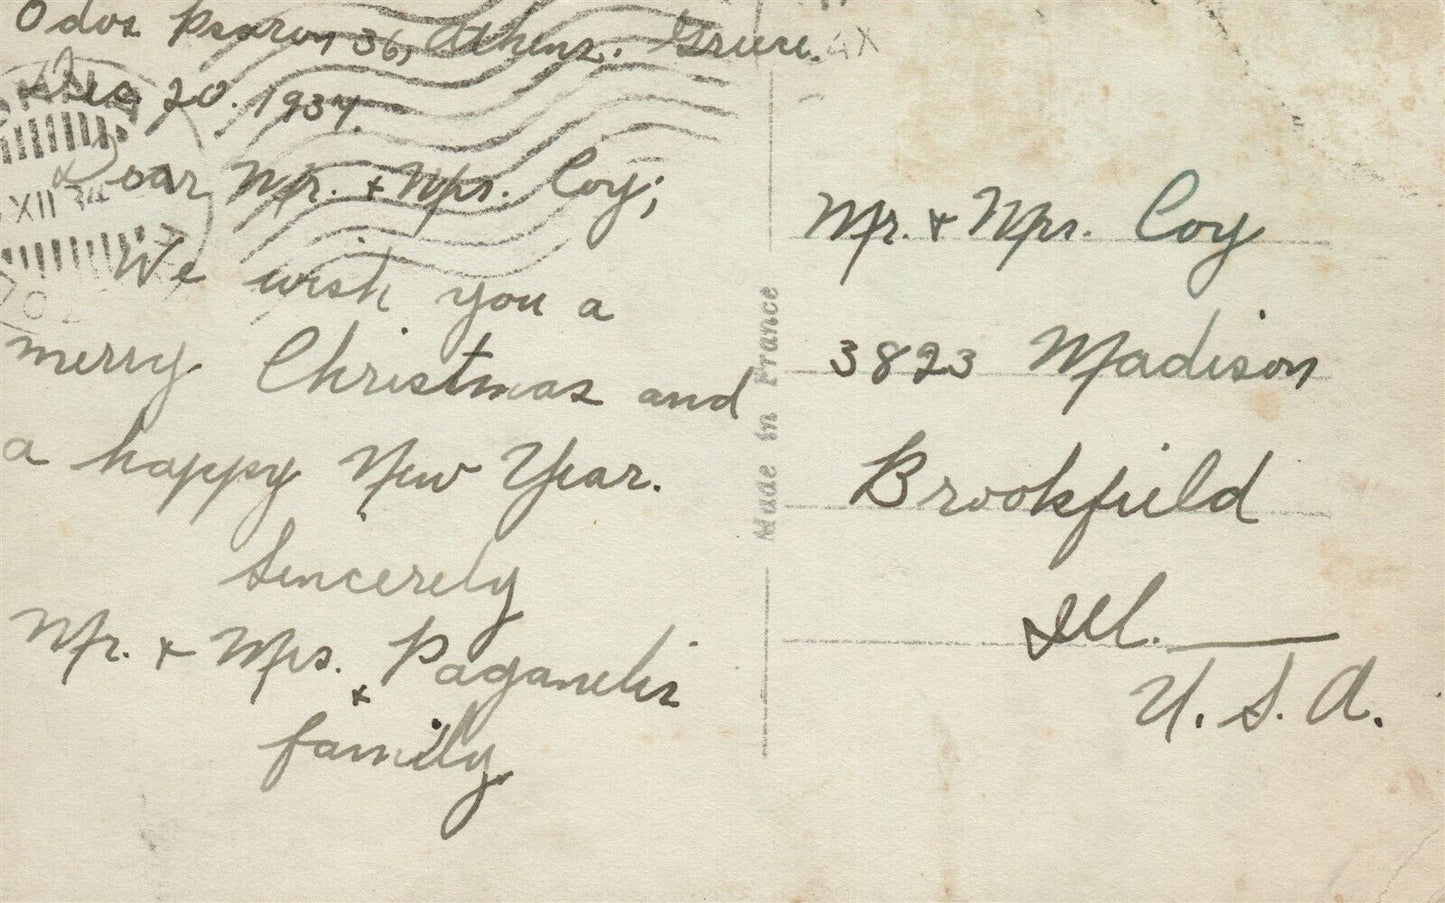 Odos Psaron 36, Athens. Greece.
Dec. 20. 1934.
Dear Mr. & Mrs. Coy;
We wish you a
merry Christmas and
a happy New Year.
Sincerely
Mr. & Mrs. Paganelis
&
family
XII 34
Made in France
Mr. & Mrs. Coy
3823 Madison
Brookfield
Ill.
U. S. A.